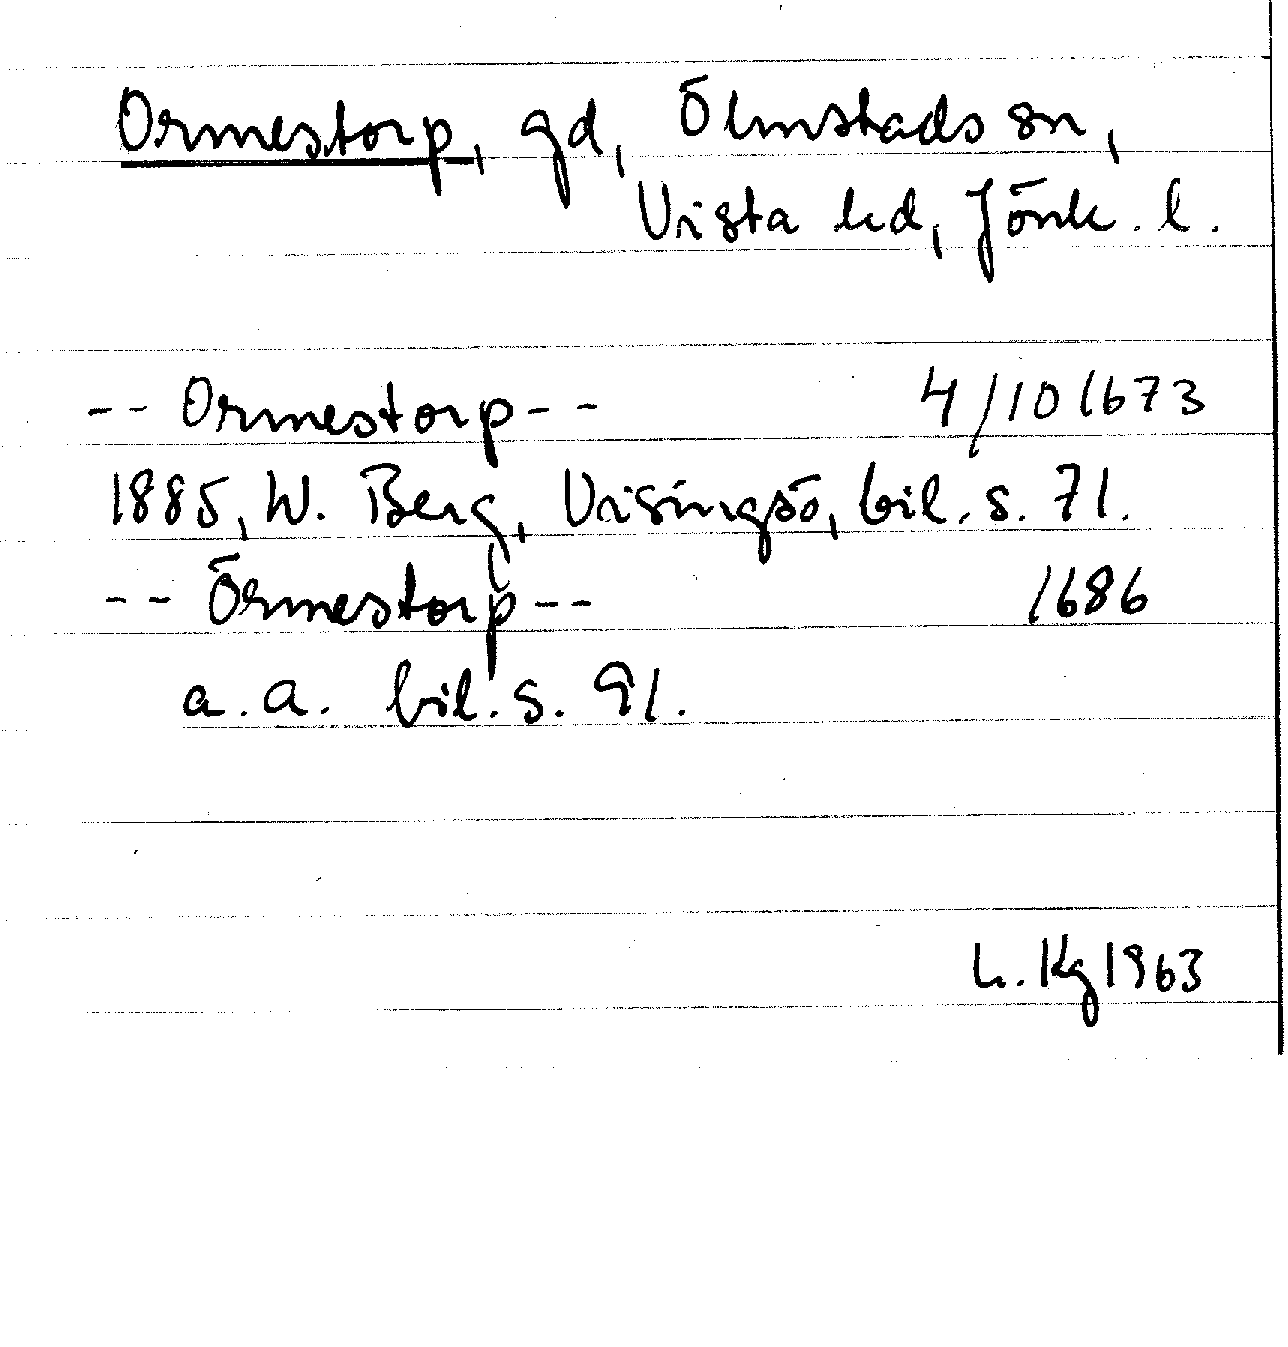 Ormestorp, gd, Ölmstads sn,
Vista hd, Jönk. l.
-- Ormestorp -- 4/10 1673
1885, W. Berg, Visingsö, bil. s. 71.
-- Örmestorp -- 1686
a. a. bil. s. 91.
L. Kg 1963